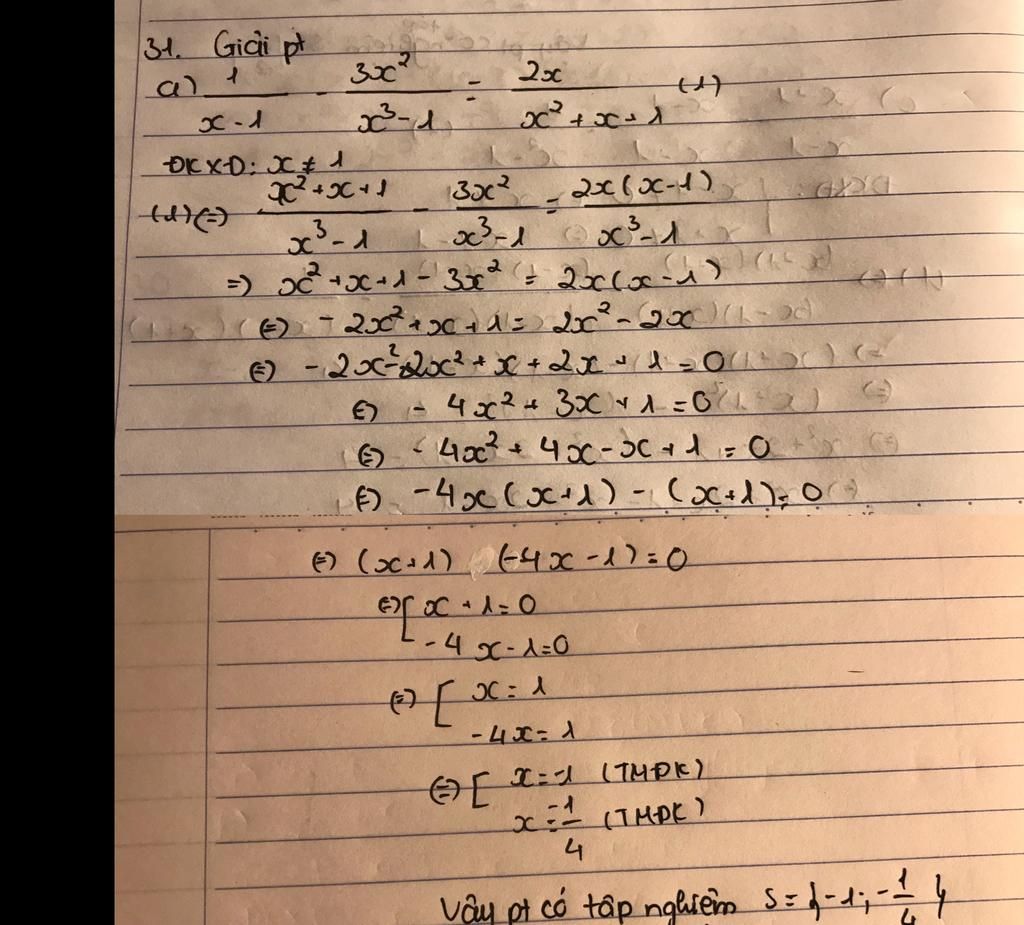 31. Giải pt
a) 1/(x-1) - 3x²/(x³-1) = 2x/(x²+x+1) (1)
ĐKXĐ: x ≠ 1
(1) (=) (x²+x+1)/(x³-1) - 3x²/(x³-1) = 2x(x-1)/(x³-1)
=) x²+x+1 - 3x² = 2x(x-1)
(=) -2x²+x+1 = 2x²-2x
(=) -2x²-2x²+x+2x+1=0
(=) -4x²+3x+1=0
(=) -4x²+4x-x+1=0
(=) -4x(x+1)-(x+1)=0
(=) (x+1) (-4x-1)=0
(=) [ x+1=0
-4x-1=0
(=) [ x=1
-4x=1
(=) [ x=-1 (TMĐK)
x=-1/4 (TMĐK)
Vậy pt có tập nghiệm S={-1;-1/4}